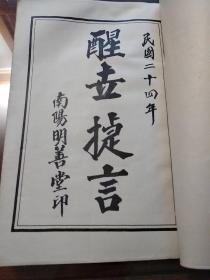 民國二十四年
醒世捷言
南陽明善堂印